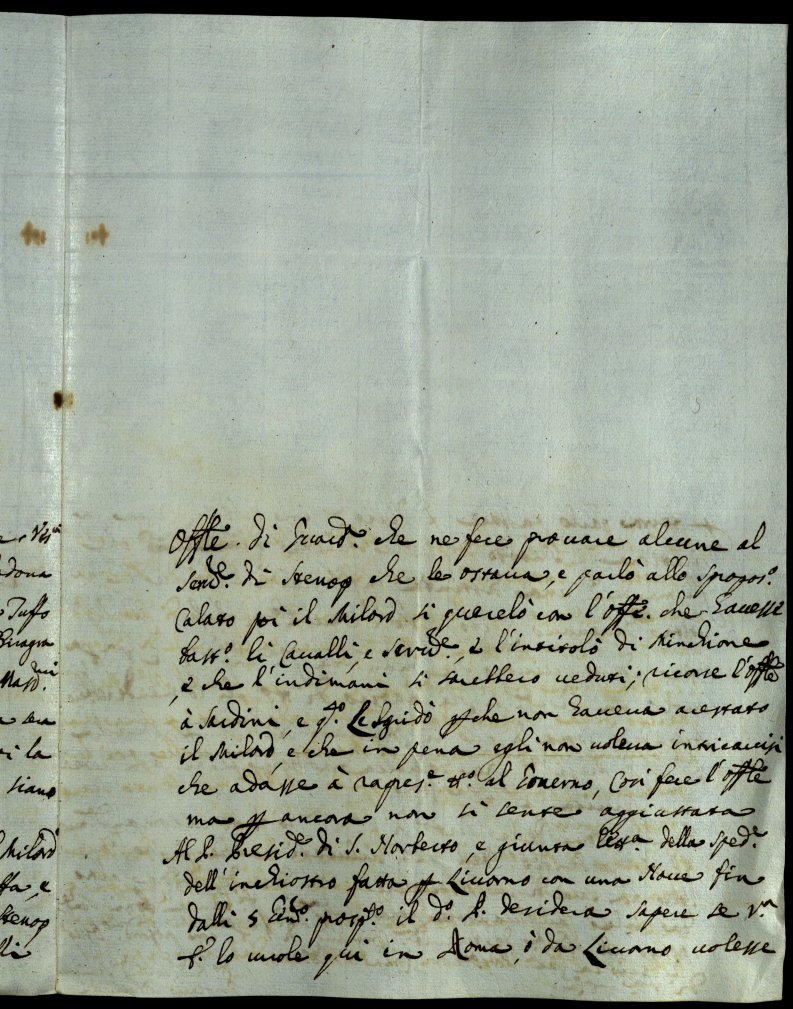 e Vis.
dona
Tuffo
Masd.
sera
i la
siano
Milord
ffa, e
Stenop
lli
Offle. di Guard.ᵃ che ne fece prouare alcune al
Serud.ᵉ di Stenop che le ostaua, e parlò allo spropos.ᵒ
Calato poi il Milord si querelò con l'offe. che hauesse
batt.ᵒ li Caualli, e Serud.ᵉ, e l'intitolò di Minchione
, e che l'indimani si sarebbero ueduti; ricorse l'offle
à Sardini, e q.ᵗᵒ lo sgridò p che non haueua arestato
il Milord, e che in pena egli non uoleua intricarsi
che adasse à rapres.ᵉ tt.ᵒ al Gouerno, così fece l'offle
ma p ancora non si sente aggiustata
Al P. Presid.ᵉ di S. Norberto, e giunta lett.ᵃ della sped.ᵉ
dell'inchiostro fatta p Liuorno con una Naue fin
dalli 5 pasp.ᵗᵒ il d.ᵒ P. desidera sapere se V.ᵃ
P. lo uuole qui in Roma, ò da Liuorno uolesse